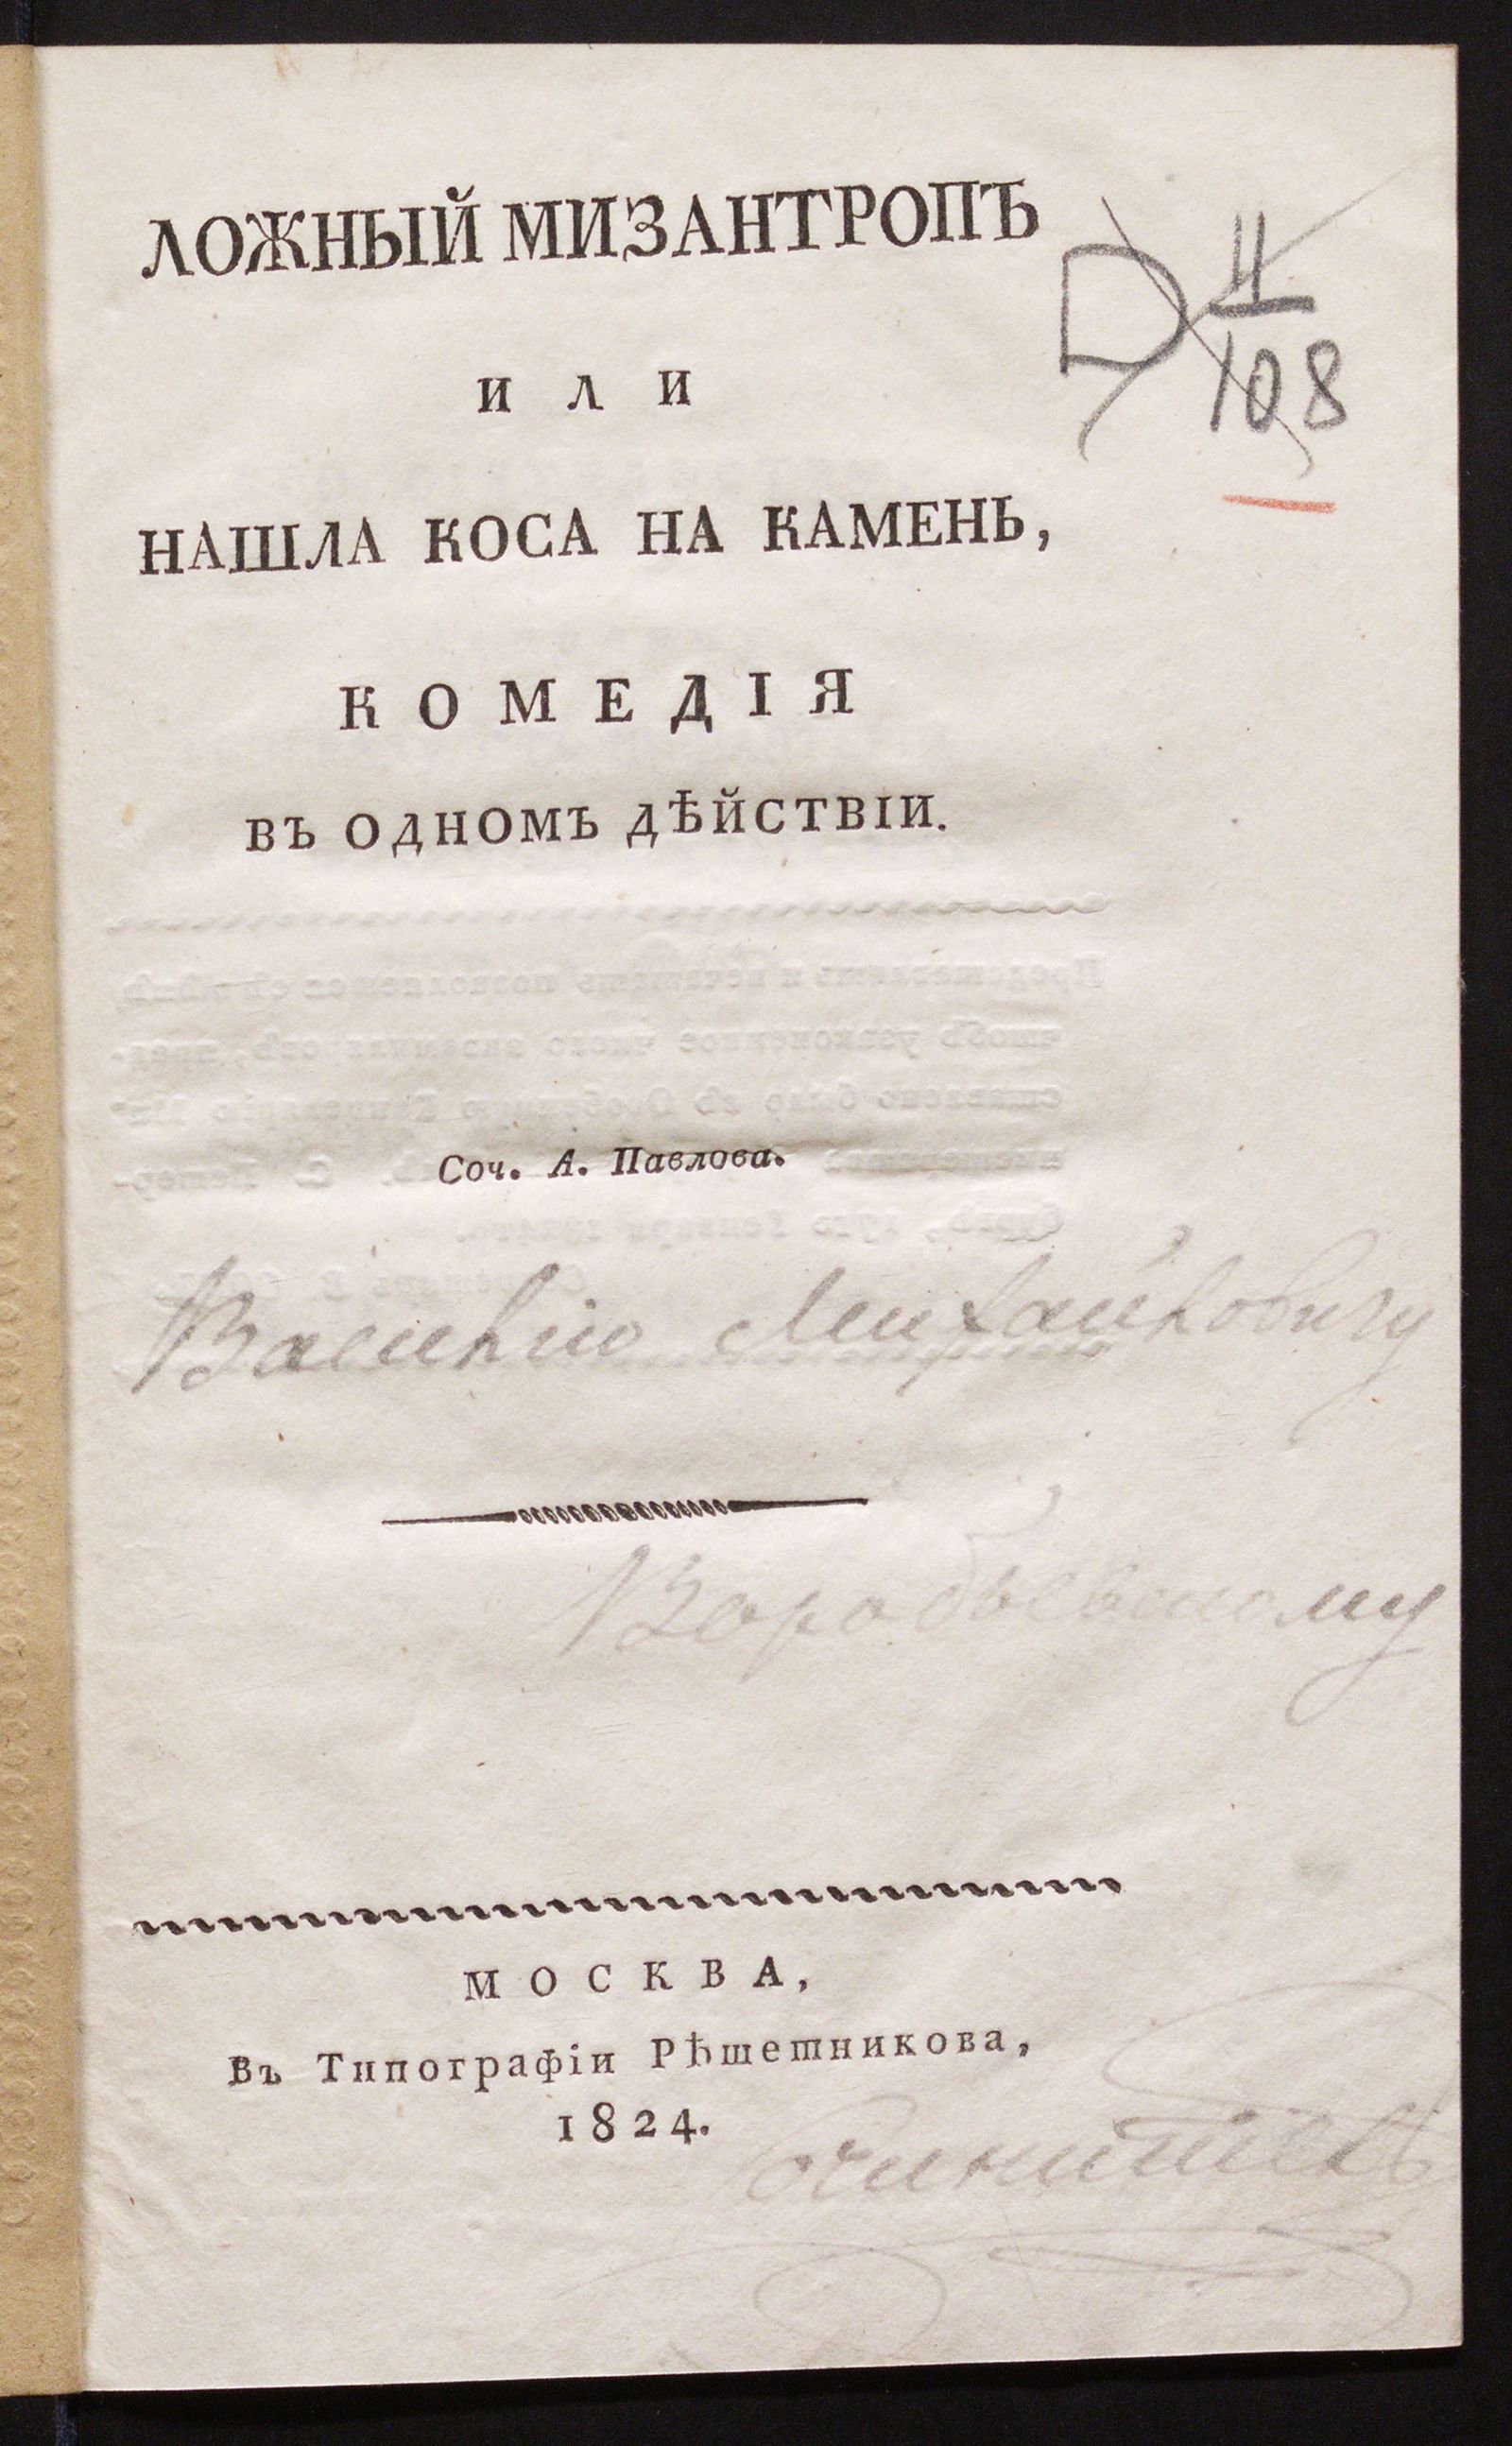 ЛОЖНЫЙ МИЗАНТРОПЪ
Д II
108
ИЛИ
НАШЛА КОСА НА КАМЕНЬ,
КОМЕДІЯ
ВЪ ОДНОМЪ ДѢЙСТВІИ.
Соч. А. Павлова.
Василію Михайловичу
Воробьевскому
МОСКВА,
Въ Типографіи Рѣшетникова,
1824.
Сочинитель